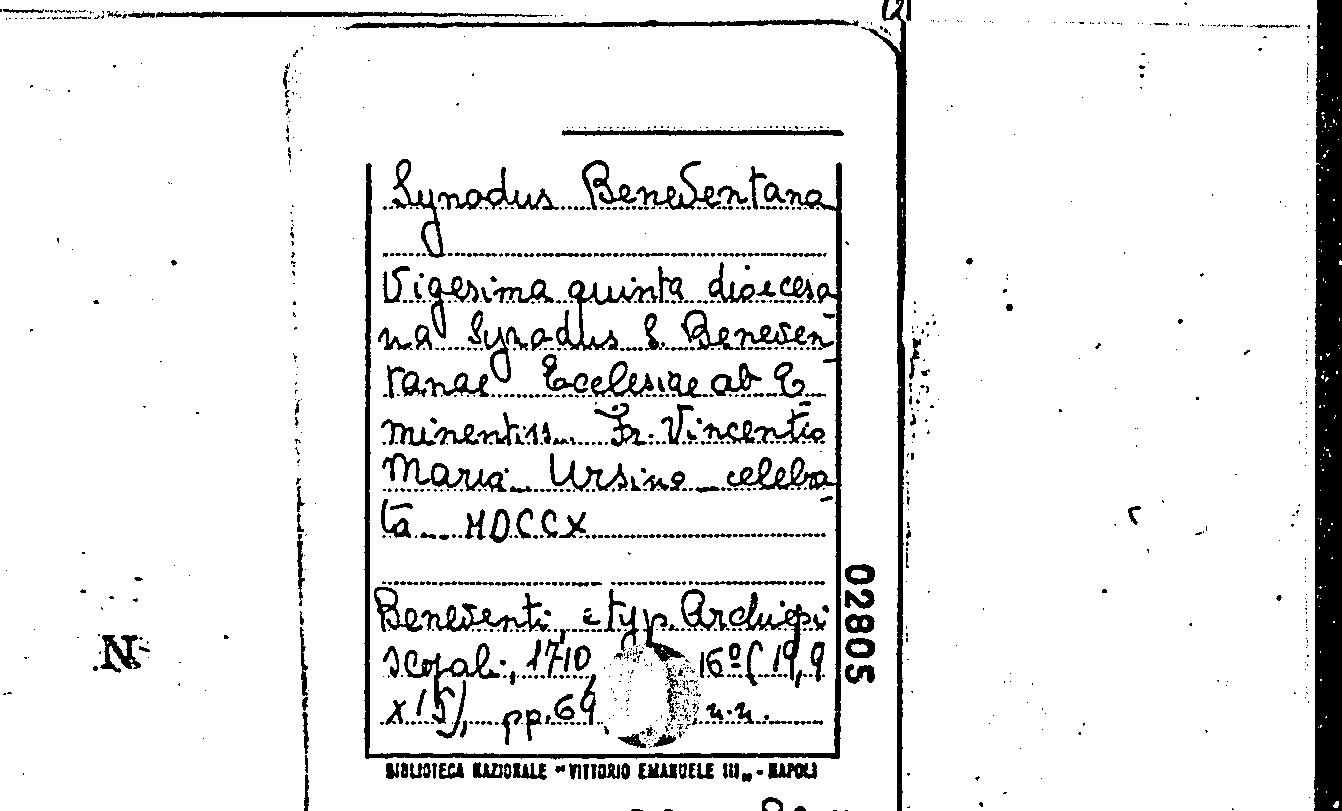 Synodus Beneventana
Vigesima quinta dioecesa
na Synodus S. Beneven
tanae Ecclesiae ab E
minentiss... Fr. Vincentio
Maria... Ursino... celebra
ta... MDCCX
Beneventi, e typ. Archiepi
scopali, 1710, 16º (19,9
x 15), pp. 69 n.n.
02805
BIBLIOTECA NAZIONALE "VITTORIO EMANUELE III" - NAPOLI
N